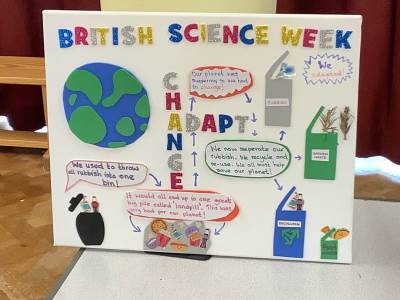 BRITISH SCIENCE WEEK
We
adapted!
Our planet was
suffering so we had
to change!
CHANGE
ADAPT
RUBBISH
We used to throw
all rubbish into one
bin!
We now seperate our
rubbish. We recycle and
re-use. We all must help
save our planet!
GARDEN WASTE
It would all end up in one great
big pile called 'landfill'. This was
very bad for our planet!
RECYCLING